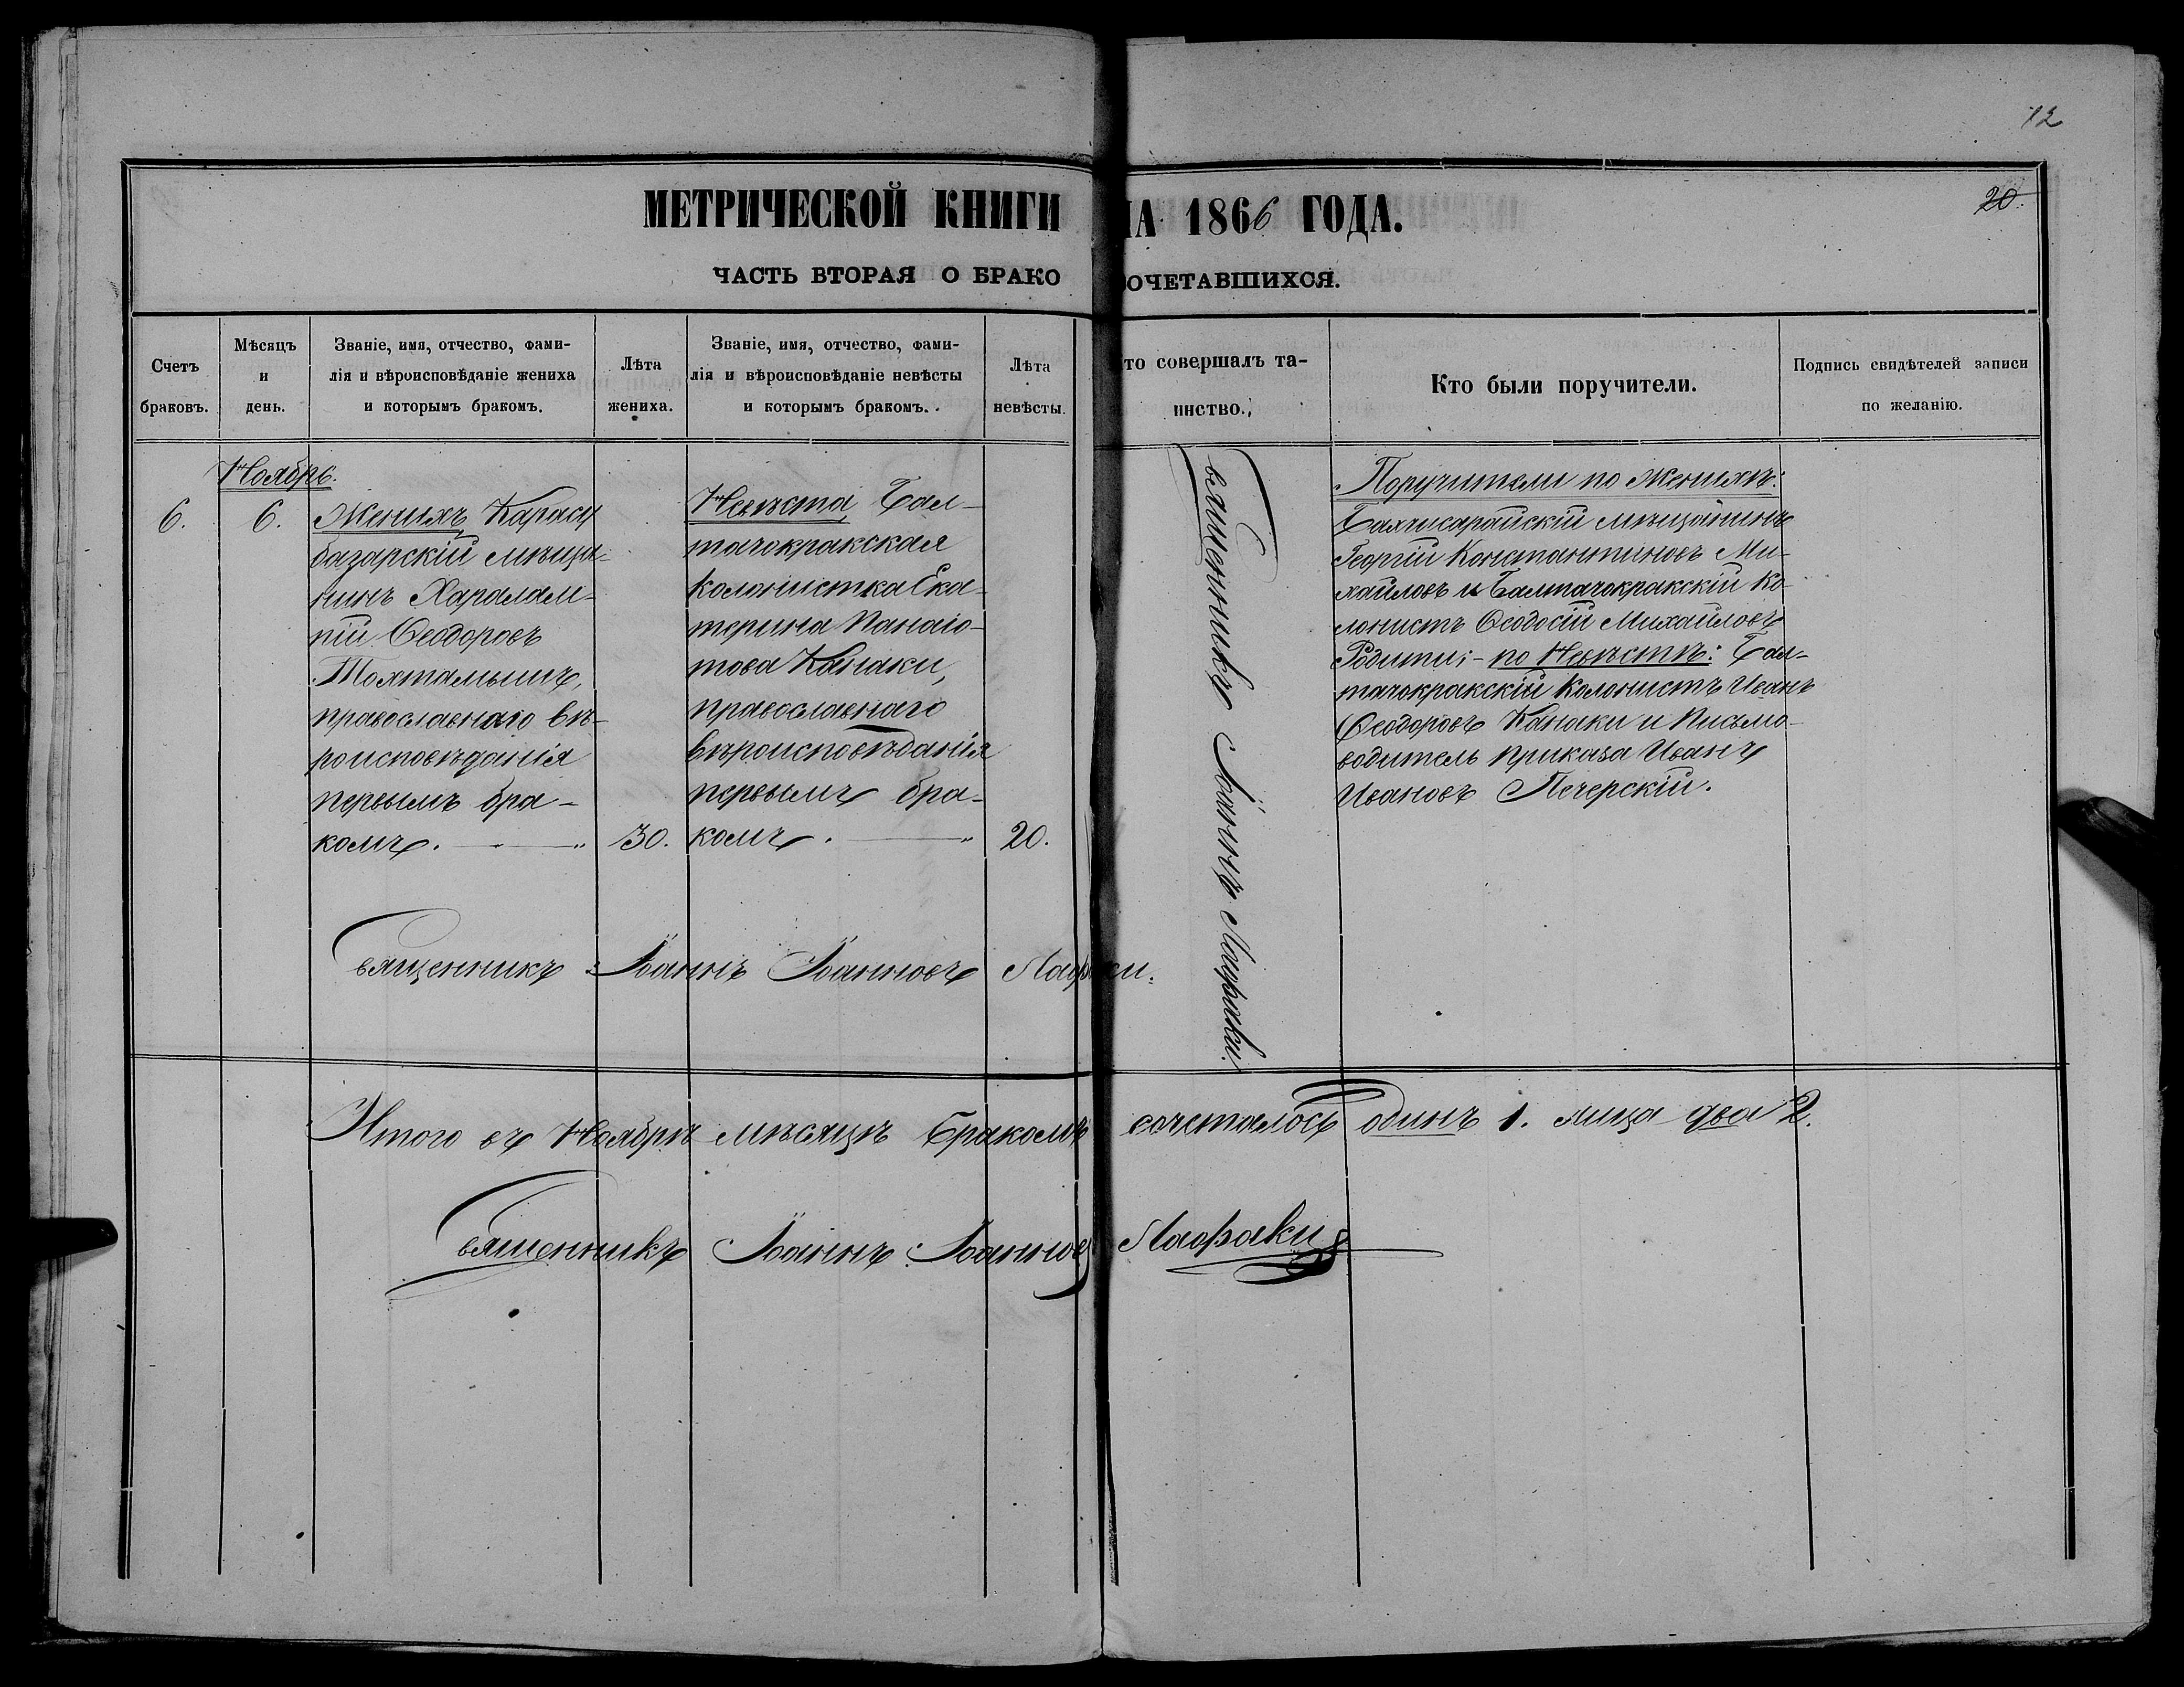 12
МЕТРИЧЕСКОЙ КНИГИ НА 1866 ГОДА.
20.
ЧАСТЬ ВТОРАЯ О БРАКОСОЧЕТАВШИХСЯ.
Счетъ
браковъ.
Мѣсяцъ
и
день.
Званіе, имя, отчество, фами-
лія и вѣроисповѣданіе жениха
и которымъ бракомъ.
Лѣта
жениха.
Званіе, имя, отчество, фами-
лія и вѣроисповѣданіе невѣсты
и которымъ бракомъ.
Лѣта
невѣсты.
то совершалъ та-
инство.
Кто были поручители.
Подпись свидѣтелей записи
по желанію.
Ноябрь.
6.
6.
Женихъ, Карасу
базарскій мѣща-
нинъ Харалам-
пій Ѳеодоровъ
Тохтамышъ,
православнаго вѣ-
роисповѣданія
первымъ бра-
комъ.
30.
Невѣста, Бал-
тачокракская
колонистка Ека-
терина Панаіо-
това Канаки,
православнаго
вѣроисповѣданія
первымъ бра-
комъ.
20.
Священникъ Іоаннъ Лафаки.
Поручители по Женихѣ:
Бахчисарайскій мѣщанинъ
Георгій Константиновъ Ми-
хайловъ и Балтачокракскій ко-
лонистъ Ѳеодосій Михайловъ
Родити; - по Невѣстѣ: Бал-
тачокракскій колонистъ Иванъ
Ѳеодоровъ Канаки и Письмо-
водитель приказа Иванъ
Ивановъ Печерскій.
Священникъ Іоаннъ Іоанновъ Лафаки.
Итого въ Ноябрѣ мѣсяцѣ бракомъ сочеталось одинъ 1. лица два 2.
Священникъ Іоаннъ Іоанновъ Лафаки